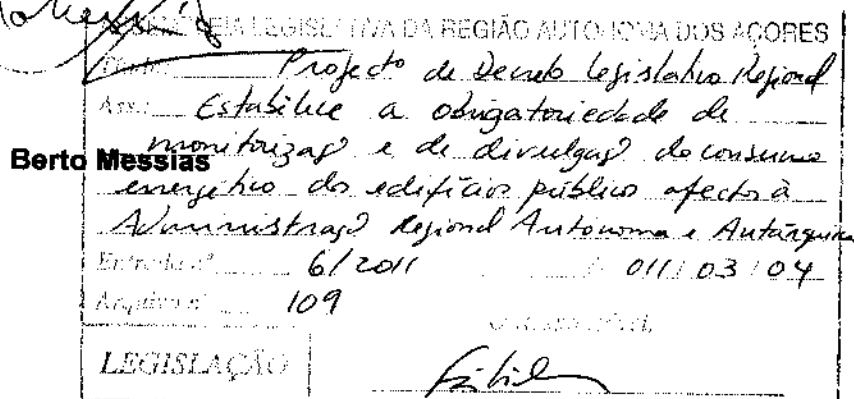 ASSEMBLEIA LEGISLATIVA DA REGIÃO AUTÓNOMA DOS AÇORES
Projecto de Decreto Legislativo Regional
Ass.: Estabelece a obrigatoriedade de
Berto Messias
monitorização e de divulgação do consumo
energético dos edifícios públicos afectos à
Administração Regional Autónoma e Autárquica
Entrada nº 6/2011 011/03/04
Arquivo nº 109
LEGISLAÇÃO